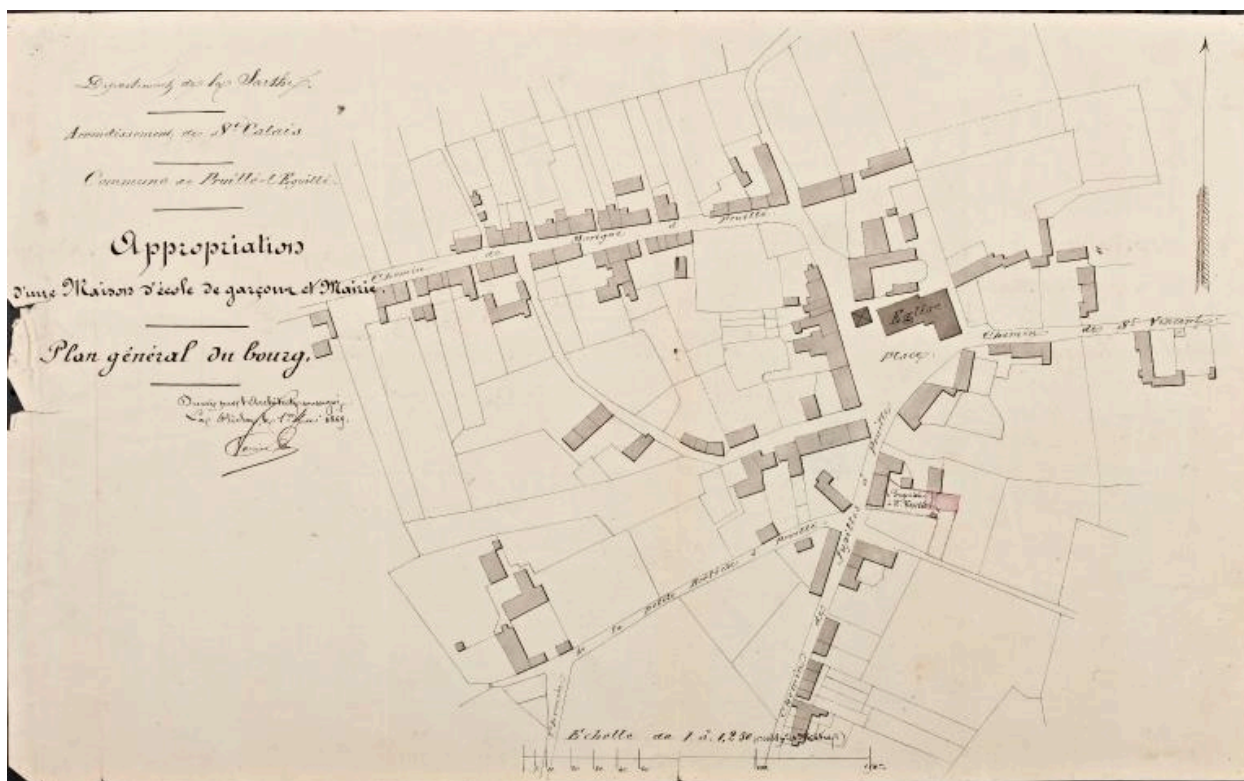 Département de la Sarthe.
Arrondissement de St Calais
Commune de Pruillé-l'Eguillé.
Appropriation
d'une Maison d'école de garçons et Mairie.
Plan général du bourg.
Dressé par l'Architecte soussigné
1er Mai
Chemin de Marigné à Pruillé
Eglise
Place
Chemin de St Vincent
Chemin de la petite à Pruillé
Chemin de à Pruillé
Echelle de 1 à 1,250